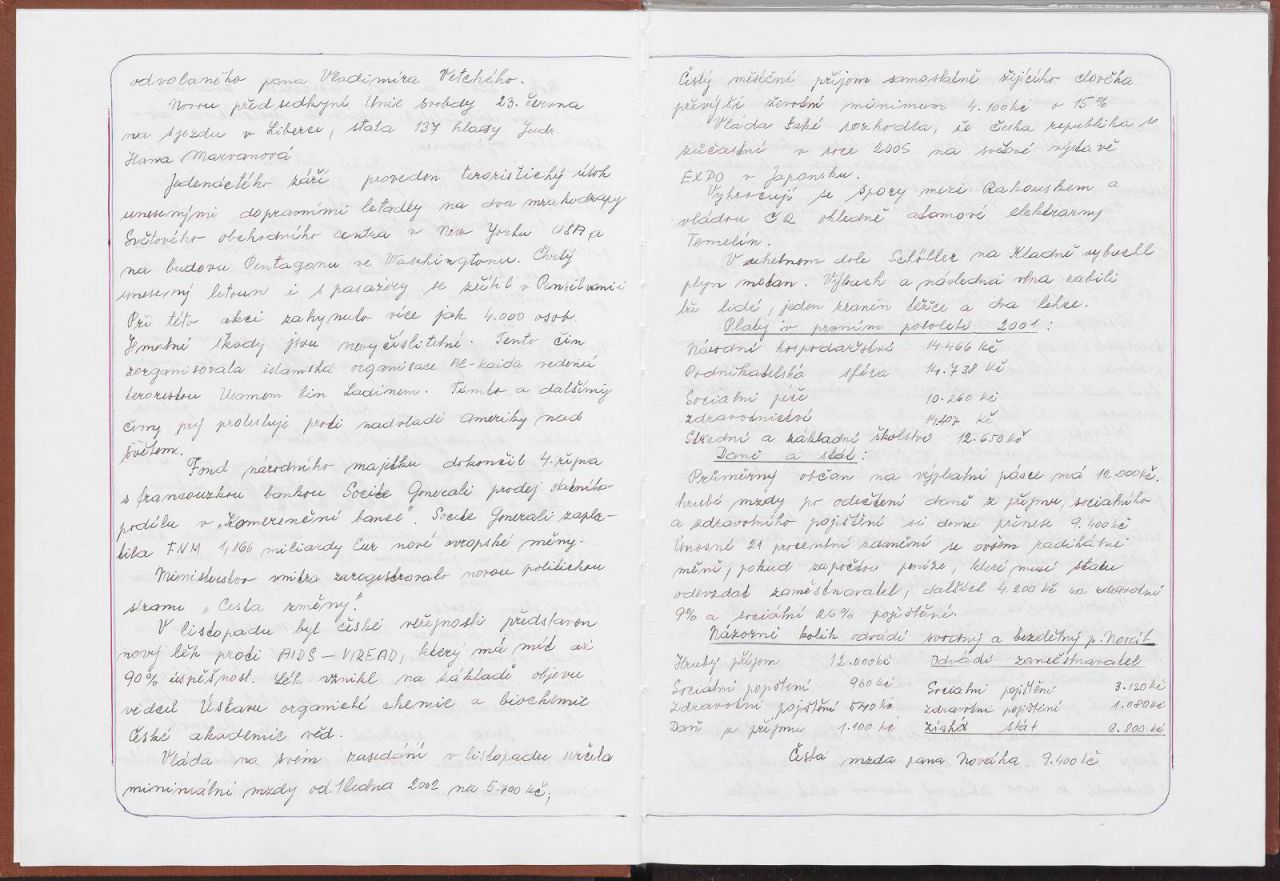 odvolaného pana Vladimíra Vetchého.
Novou předsedkyní Unie svobody 23. června
na sjezdu v Liberci, stala 137 hlasy Judr.
Hana Marvanová
Jedenáctého září proveden teroristický útok
unesenými dopravními letadly na dva mrakodrapy
Světového obchodního centra v New Yorku USA a
na budovu Pentagonu ve Waschingtonu. Čvrtý
unesený letoun i s pasažéry se zřítil v Pensilvanii
Při této akci zahynulo více jak 4.000 osob.
Hmotné škody jsou nevyčíslitelné. Tento čin
zorganisovala islamská organisace Al-kaida vedená
teroristou Usamou bin Ladinem. Tímto a dalšími
činy prý protestuje proti nadvládě Ameriky nad
světem.
Fond národního majetku dokončil 4. října
s francouzkou bankou Socite Generali prodej státního
podílu v „Komeremční bance". Socite Generali zapla-
tila FNM 1,166 miliardy Eur nové evropské měny.
Ministerstvo vnitra zaregistrovalo novou politickou
stranu „Cesta změny".
V listopadu byl české veřejnosti představen
nový lék proti AIDS - VIREAD, který má mít až
90% úspěšnost. Lék vznikl na základě objevu
vědců Ústavu organické chemie a biochemie
České akademie věd.
Vláda na svém zasedání v listopadu určila
minimální mzdy od 1 ledna 2002 na 5.700 Kč,
Čistý měsíční příjem samostatně žijícího člověka
převýší životní minimum 4.100 Kč o 15%
Vláda také rozhodla, že Česká republika se
zúčastní v roce 2005 na světové výstavě
EXPO v Japonsku.
Vyhrocují se spory mezi Rakouskem a
vládou ČR ohledně atomové elektrárny
Temelín.
V uhelnom dole Schöller na Kladně vybuchl
plyn metan. Výbuch a následná vlna zabili
tři lidé, jeden zraněn těžce a dva lehce.
Platy v prvním pololetí 2001:
Národní hospodářství 14.466 Kč
Podnikatelská sféra 14.738 Kč
Sociální péče 10.260 Kč
Zdravotnictví 14.407 Kč
Střední a základní školství 12.650 Kč
Daně a stát:
Průměrný občan na výplatní pásce má 12.000 Kč.
hrubé mzdy po odečtení daně z příjmu, sociálního
a zdravotního pojištění si domů přinese 9.400 Kč
Únosné 21 procentní zdanění se ovšem radikálně
mění, pokud započtou peníze, které musí státu
odevzdat zaměstnavatel, dalších 4.200 Kč za zdravotní
9% a sociální 26% pojištění.
Názorně kolik odvádí svobodný a bezdětný p. Novák
Hrubý příjem 12.000 Kč Odvádí zaměstnavatel
Sociální pojištění 960 Kč Sociální pojištění 3.120 Kč
Zdravotní pojištění 540 Kč zdravotní pojištění 1.080 Kč
Daň z příjmu 1.100 Kč Získá stát 6.800 Kč
Čistá mzda pana Nováka 9.400 Kč